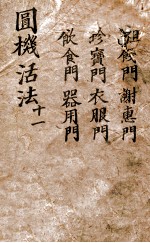 門 謝惠門
珍寶門 衣服門
飲食門 器用門
圓機活法 十一